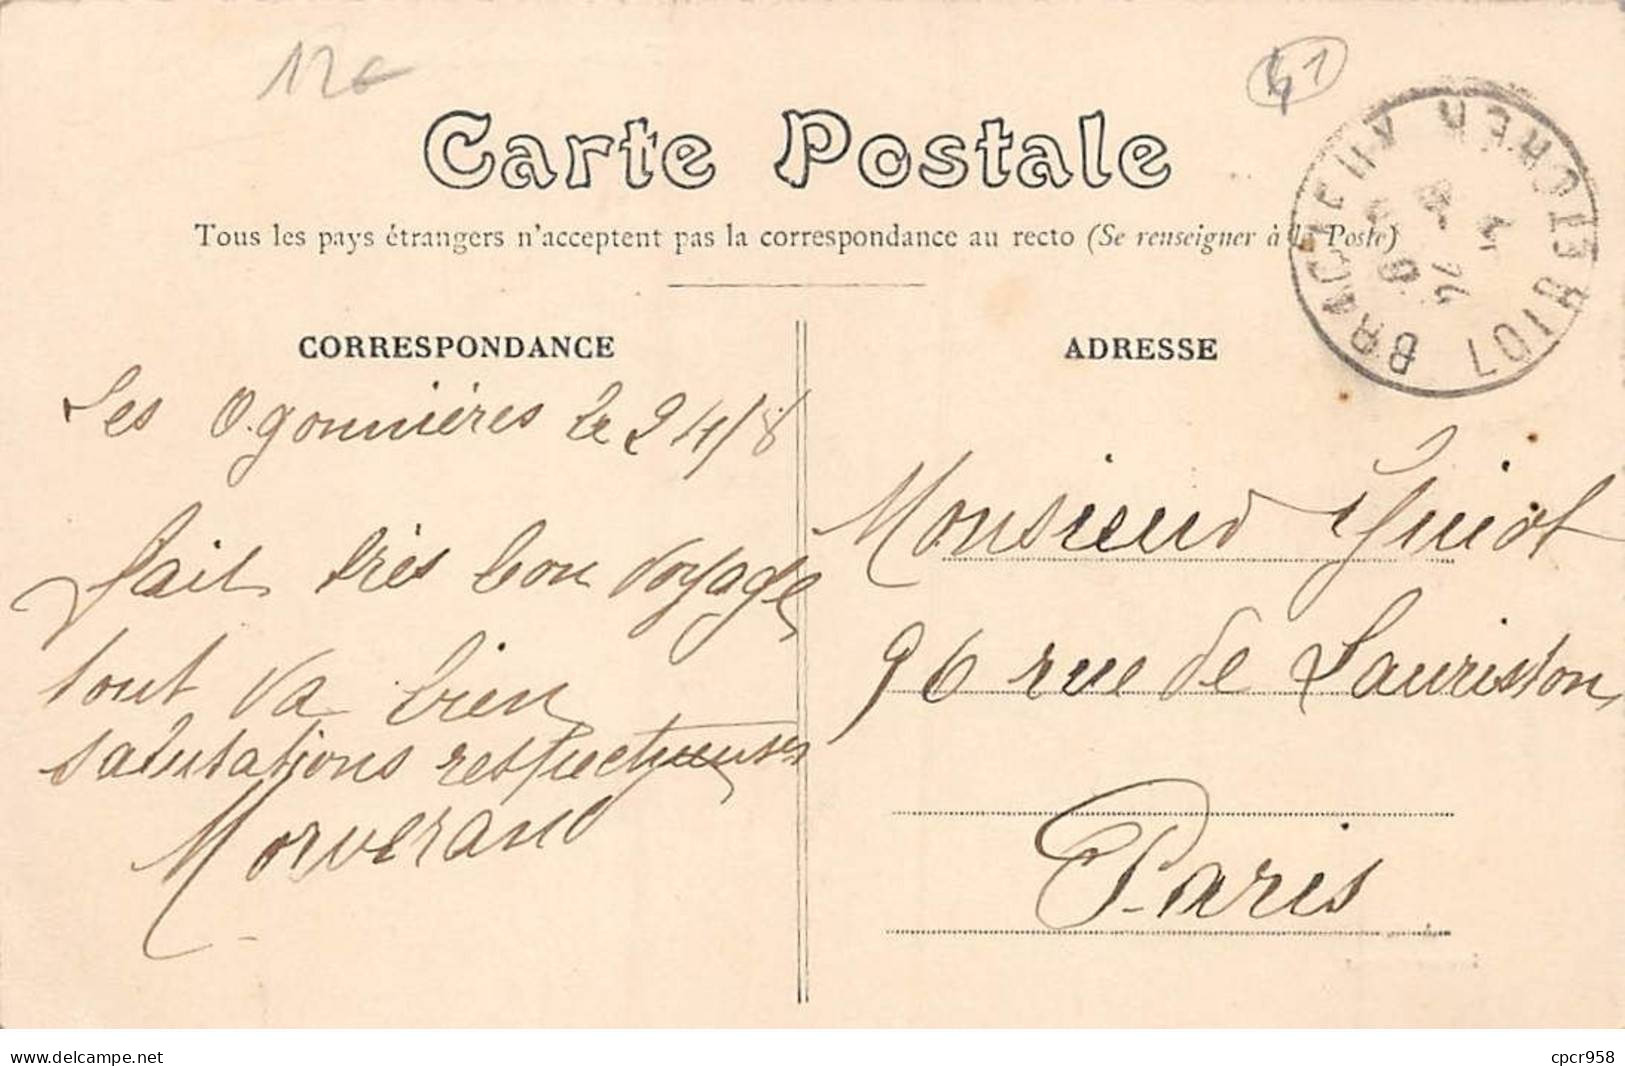 12€
41
Carte Postale
Tous les pays étrangers n'acceptent pas la correspondance au recto (Se renseigner à la Poste)
BRACIEUX LOIR ET CHER
24 - 8
CORRESPONDANCE
ADRESSE
Les Ogonnières le 24/8
fait très bon voyage
tout va bien
salutations respectueuses
Morverand
Monsieur Guiot
96 rue de Lauriston
Paris
www.delcampe.net
cpcr958